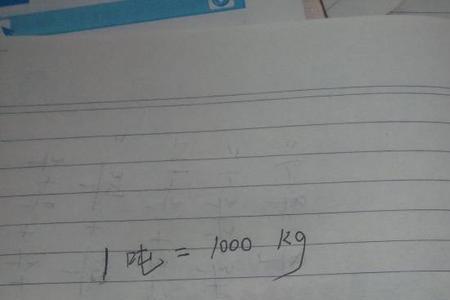 1吨=1000 kg